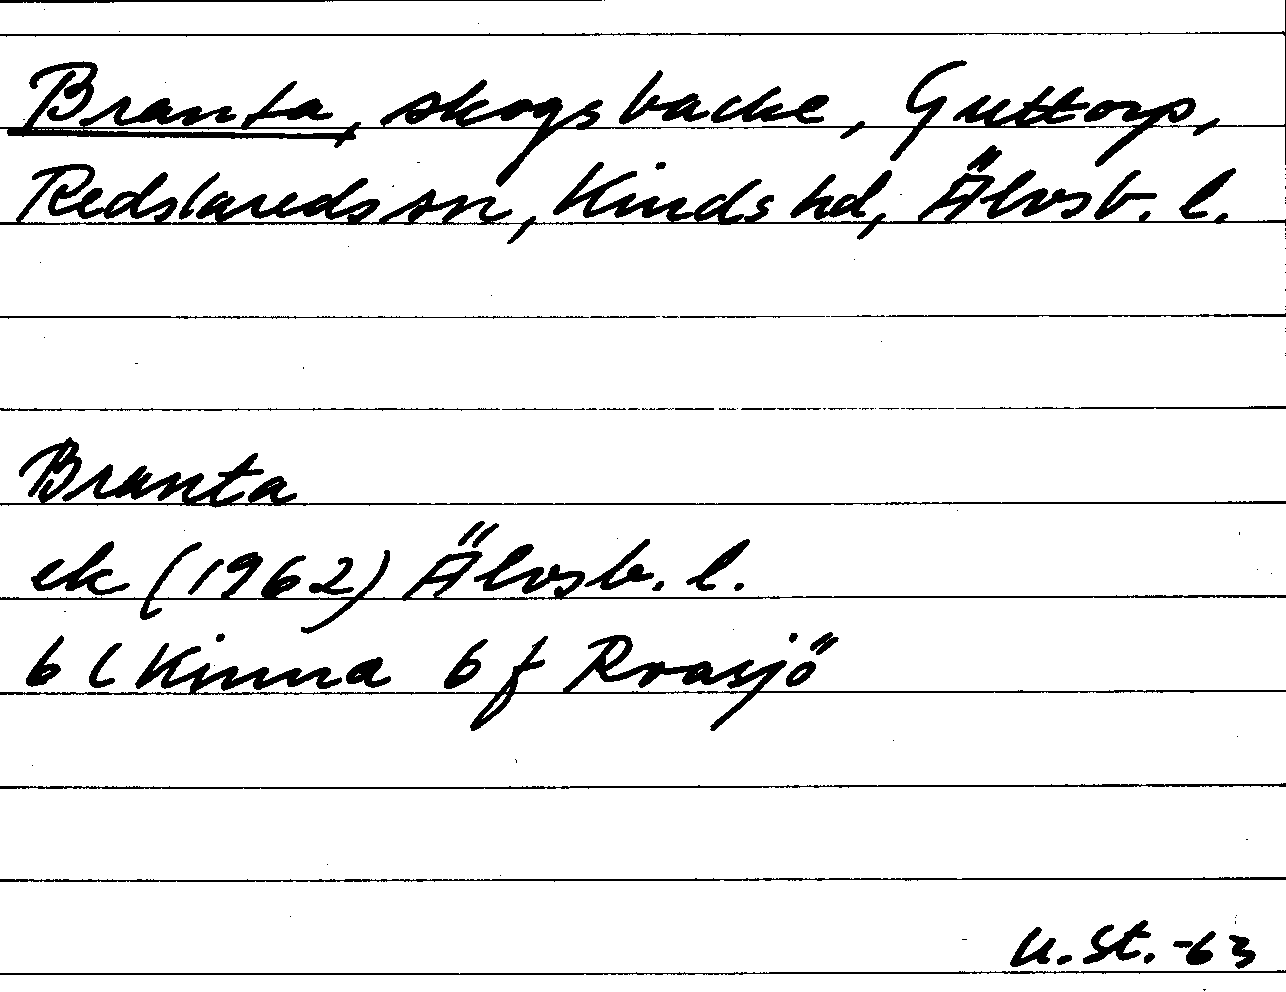 Branta, skogsbacke, Guttorp,
Redslareds sn, Kinds hd, Älvsb. l.
Branta
ek (1962) Älvsb. l.
6 C Kinna 6 f Roasjö
U.St.-63